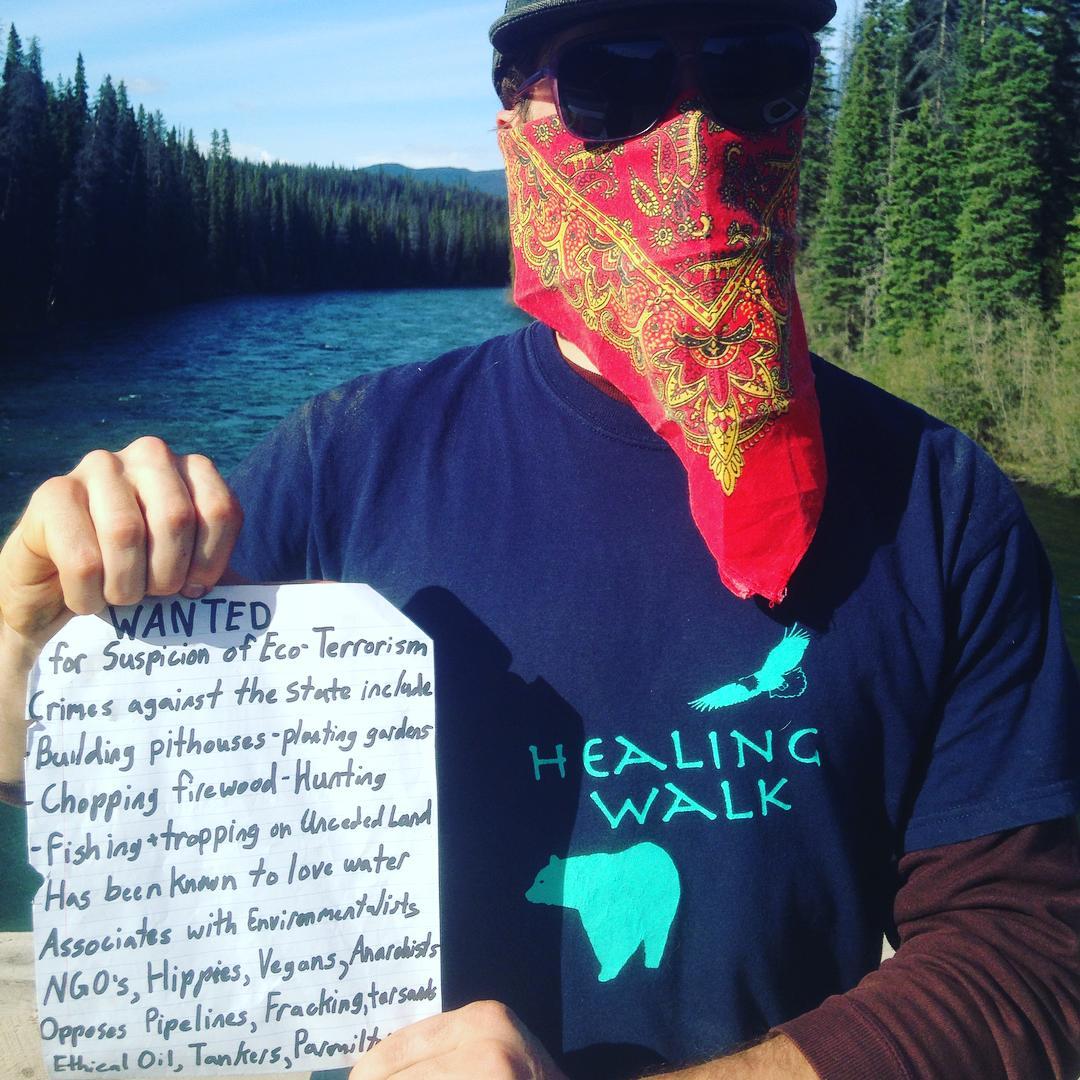 WANTED
for Suspicion of Eco-Terrorism
Crimes against the state include
-Building pithouses-planting gardens
-Chopping firewood-Hunting
-Fishing+trapping on Unceded Land
Has been known to love water
Associates with Environmentalists
NGO's, Hippies, Vegans, Anarchists
Opposes Pipelines, Fracking, tarsands
Ethical Oil, Tankers,
HEALING
WALK